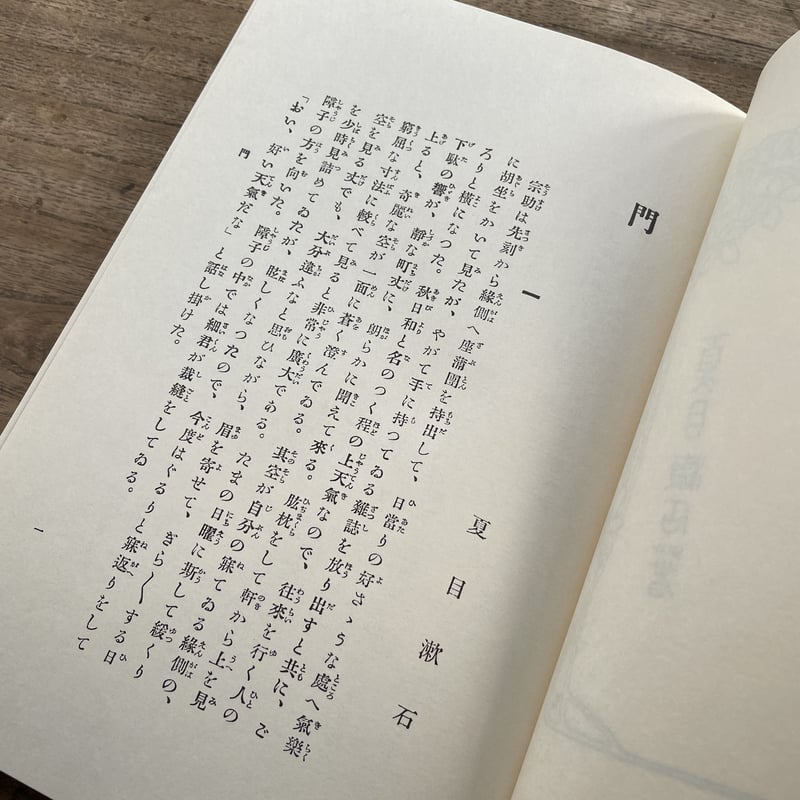 門
夏目漱石
一
宗助は先刻から緣側へ座蒲團を持出して、日當りの好さゝうな處へ氣樂
に胡坐をかいて見たが、やがて手に持つてゐる雜誌を放り出すと共に、ご
ろりと橫になつた。秋日和と名のつく程の上天氣なので、往來を行く人の
下駄の響が、靜な町丈に、朗らかに聞えて來る。肱枕をして軒から上を見
上ると、奇麗な空が一面に蒼く澄んでゐる。其空が自分の寐てゐる緣側の、
窮屈な寸法に較べて見ると非常に廣大である。たまの日曜に斯して緩くり
空を見る丈でも、大分違ふなと思ひながら、眉を寄せて、ぎら〱する日
を少時見詰めてゐたが、眩しくなつたので、今度はぐるりと寐返りをして
障子の方を向いた。障子の中では細君が裁縫をしてゐる。
「おい、好い天氣だな」と話し掛けた。
門
一